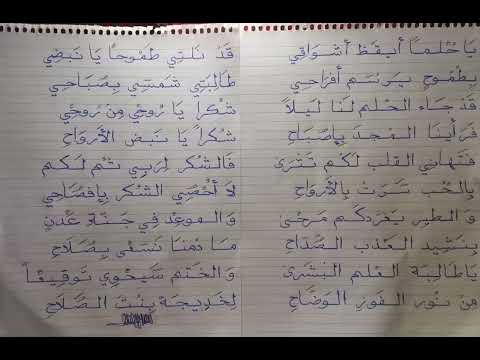 يَا حُلْمـاً أَيْقَظَ أَشْوَاقِي
بِطُمُوحٍ يَرْسُمُ أَفْرَاحِي
قَدْ جَاءَ الحُلْمُ لَنَا لَيْلاً
فَرَأَيْنَا المَجْدَ بِإِصْبَاحِ
فَتَهَانِي القَلْبِ لَكُمْ تَتْرَى
بِالحُبِّ سَرَتْ بِالأَرْوَاحِ
وَ الطَّيْرُ يُغَرِّدُكُمْ مَرْحَى
بِنَشِيدِ العَذْبِ الصَّدَّاحِ
يَاطَالِبَةَ العِلْمِ البُشْرَى
مِنْ نُورِ الفَوْزِ الوَضَّاحِ
قَدْ نِلْتِي طُمُوحاً يَا نَبْضِي
طَالِبَتِي شَمْسِي بِصَبَاحِي
شُكْراً يَا رُوحِي مِنْ رُوحِي
شُكْراً يَا نَبْضَ الأَرْوَاحِ
فَالشُّكْرُ لِرَبِّي ثُمَّ لَكُمْ
لاَ أُحْصِي الشُّكْرَ بِإِفْصَاحِي
وَ المَوْعِدُ فِي جَنَّةِ عَدْنٍ
مَا دُمْنَا نَسْعَى بِصَلاَحِ
وَ الخَتْمُ سَيَحْوِي تَوْقِيعـاً
لِخَدِيجَةَ بِنْتِ الصَّلاَحِ